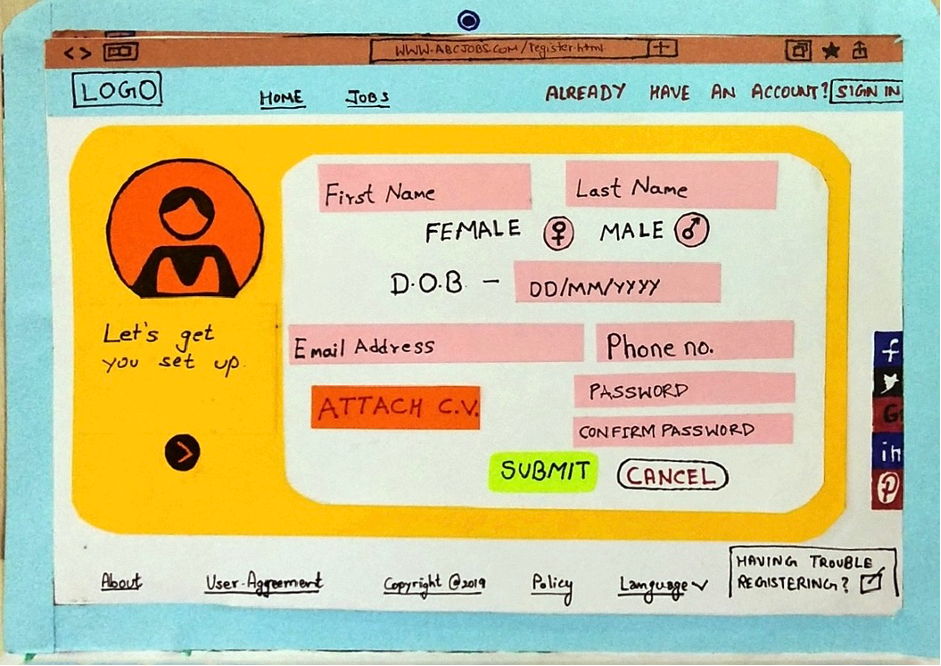 WWW.ABCJOBS.COM/register.html
LOGO
HOME JOBS
ALREADY HAVE AN ACCOUNT? SIGN IN
First Name
Last Name
FEMALE MALE
D.O.B - DD/MM/YYYY
Let's get
you set up.
Email Address
Phone no.
ATTACH C.V.
PASSWORD
CONFIRM PASSWORD
SUBMIT CANCEL
f
G
in
P
About User-Aggreement Copyright @2019 Policy Language
HAVING TROUBLE
REGISTERING?